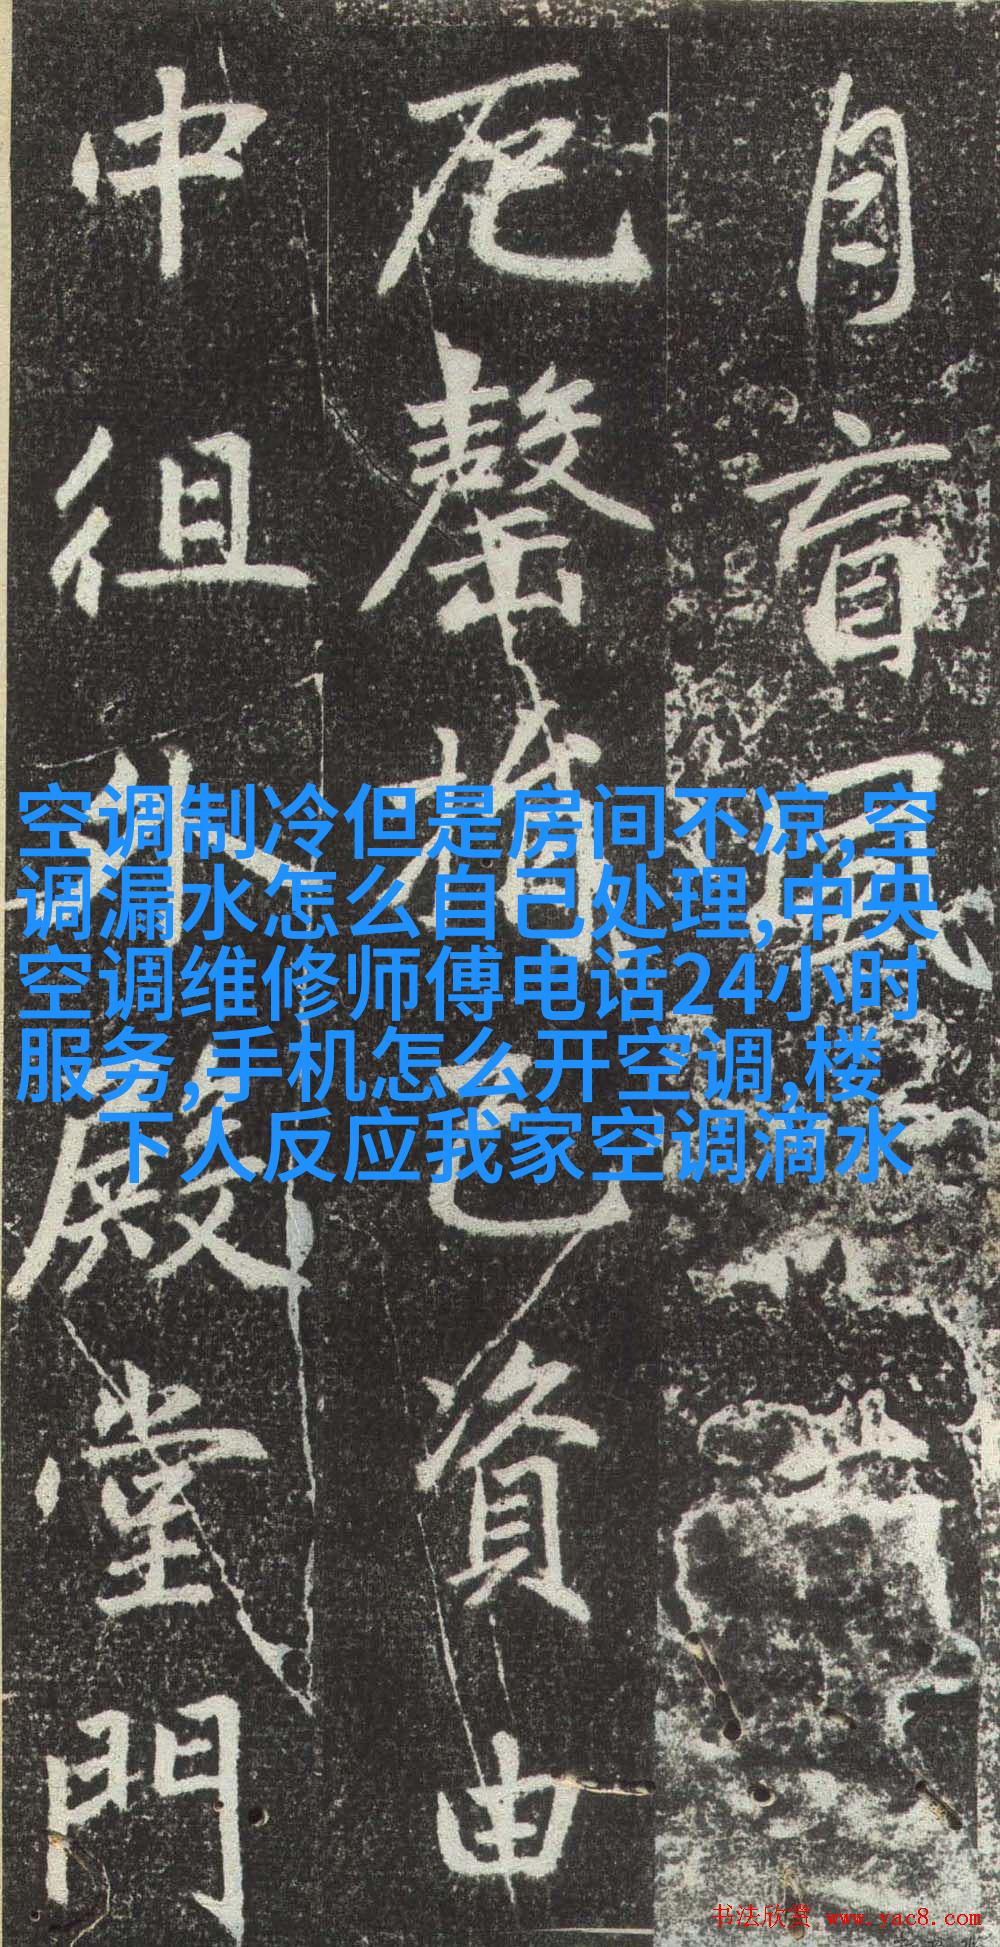 自盲風
厄罄
己資由
中徂
殿堂門
空调制冷但是房间不凉,空
调漏水怎么自己处理,中央
空调维修师傅电话24小时
服务,手机怎么开空调,楼
下人反应我家空调滴水
书法欣赏 www.yac8.com